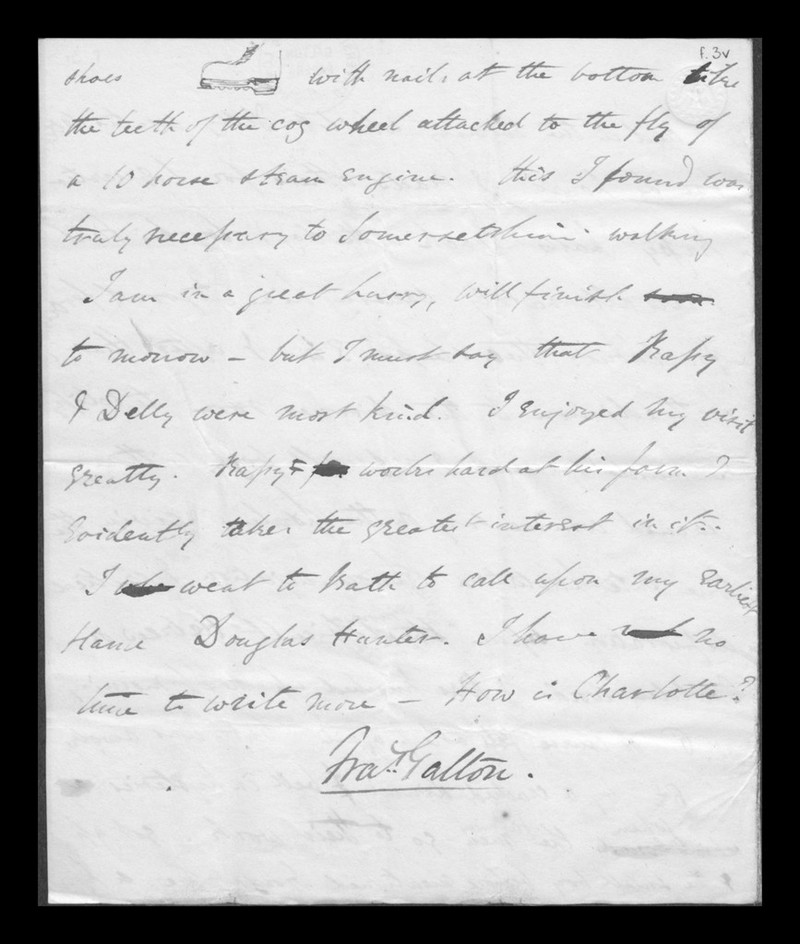 f.3v
shoes with nails at the bottom like
the teeth of the cog wheel attached to the fly of
a 10 horse steam engine. this I found was
truly necessary to Somersetshire walking
I am in a great hurry, will finish soon
to morrow – but I must say that
& Delly were most kind. I enjoyed my visit
greatly. works hard at his farm &
Evidently takes the greatest interest in it.
I went to Bath to call upon my Earliest
Douglas Hunter. I have not no
time to write more – How is Charlotte?
Fras. Galton.